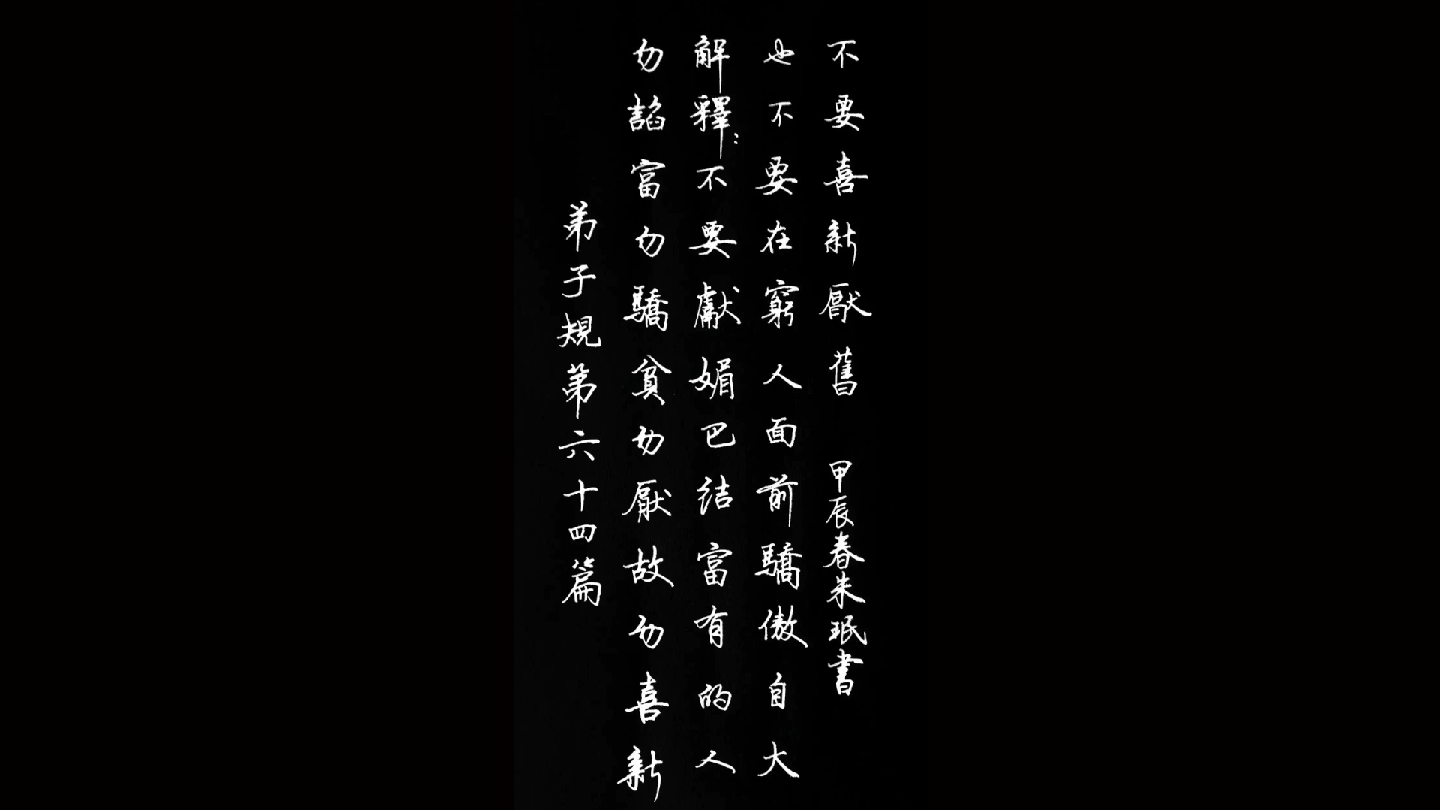 弟子規第六十四篇
勿諂富勿驕貧勿厭故勿喜新
解釋：不要獻媚巴結富有的人
也不要在窮人面前驕傲自大
不要喜新厭舊 甲辰春朱珉書